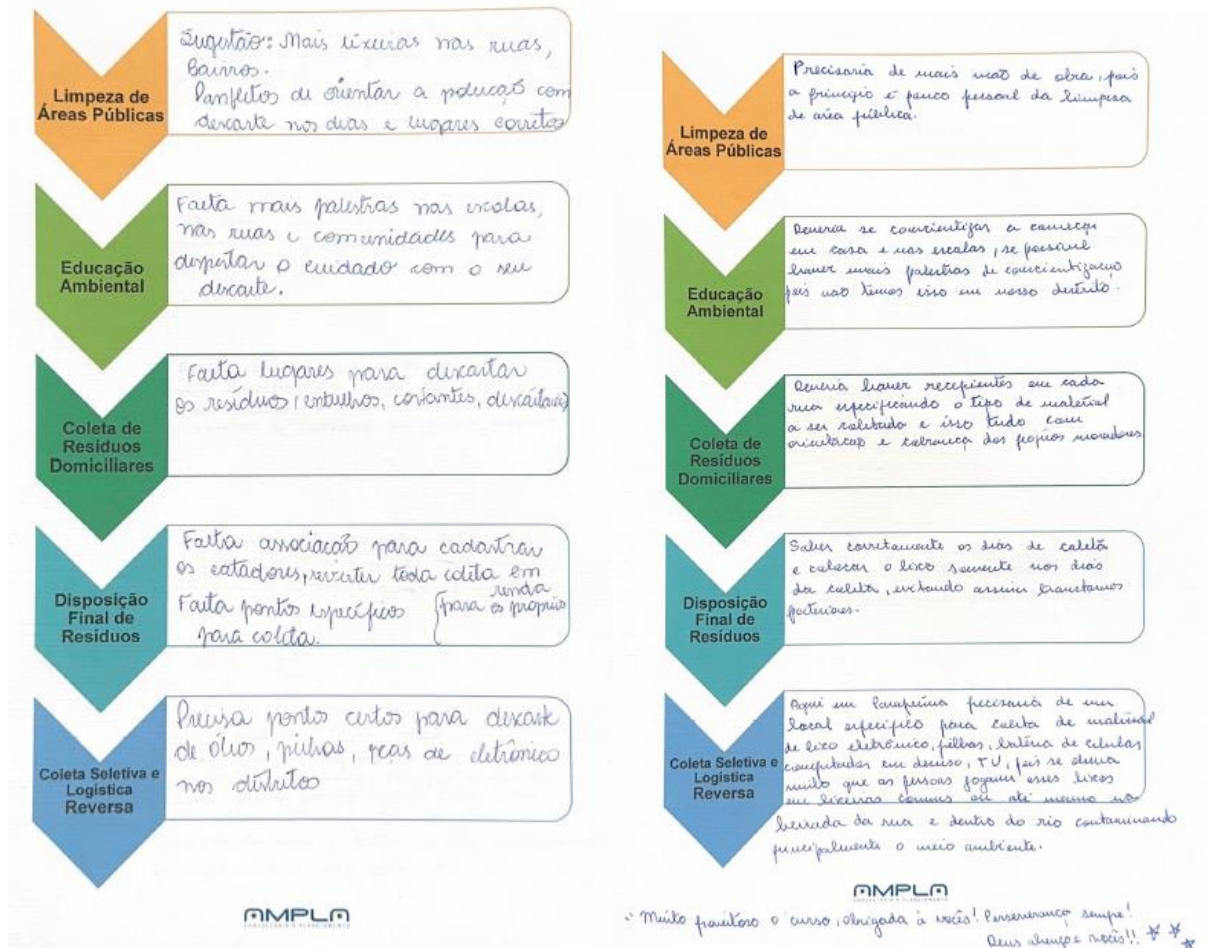 Limpeza de
Áreas Públicas
Sugestão: Mais lixeiras nas ruas,
Bairros.
Panfletos de orientar a polução com
descarte nos dias e lugares corretos
Educação
Ambiental
Falta mais palestras nas escolas,
nas ruas e comunidades para
despertar o cuidado com o seu
descarte.
Coleta de
Resíduos
Domiciliares
Falta lugares para descartar
os resíduos (entulhos, cortantes, descartáveis)
Disposição
Final de
Resíduos
Falta associação para cadastrar
os catadores, reverter toda coleta em
renda
para os próprios
Falta pontos específicos
para coleta.
Coleta Seletiva e
Logística
Reversa
Precisa pontos certos para descarte
de óleos, pilhas, peças de eletrônico
nos distritos
AMPLA
CONSULTORIA E PLANEJAMENTO
Limpeza de
Áreas Públicas
Precisaria de mais mão de obra, pois
a princípio é pouco pessoal da limpesa
de área pública.
Educação
Ambiental
Deveria se conscientizar a começar
em casa e nas escolas, se possível
haver mais palestras de conscientização
pois não temos isso em nosso distrito.
Coleta de
Resíduos
Domiciliares
Deveria haver recepientes em cada
rua especificando o tipo de material
a ser coletado e isso tudo com
orientação e cobrança dos própios moradores
Disposição
Final de
Resíduos
Saber corretamente os dias de coleta
e colocar o lixo somente nos dias
da coleta, evitando assim transtornos
posteriores.
Coleta Seletiva e
Logística
Reversa
Aqui em Carapina precisaria de um
local específico para coleta de material
de lixo eletrônico, pilhas, bateria de celular
computador em desuso, TV, pois se observa
muito que as pessoas jogam esses lixos
em lixeiras comuns ou até mesmo na
beirada da rua e dentro do rio contaminando
principalmente o meio ambiente.
AMPLA
CONSULTORIA E PLANEJAMENTO
Muito proveitoso o curso, obrigada à vocês! Perseverança sempre!
Deus abençoe vocês!!